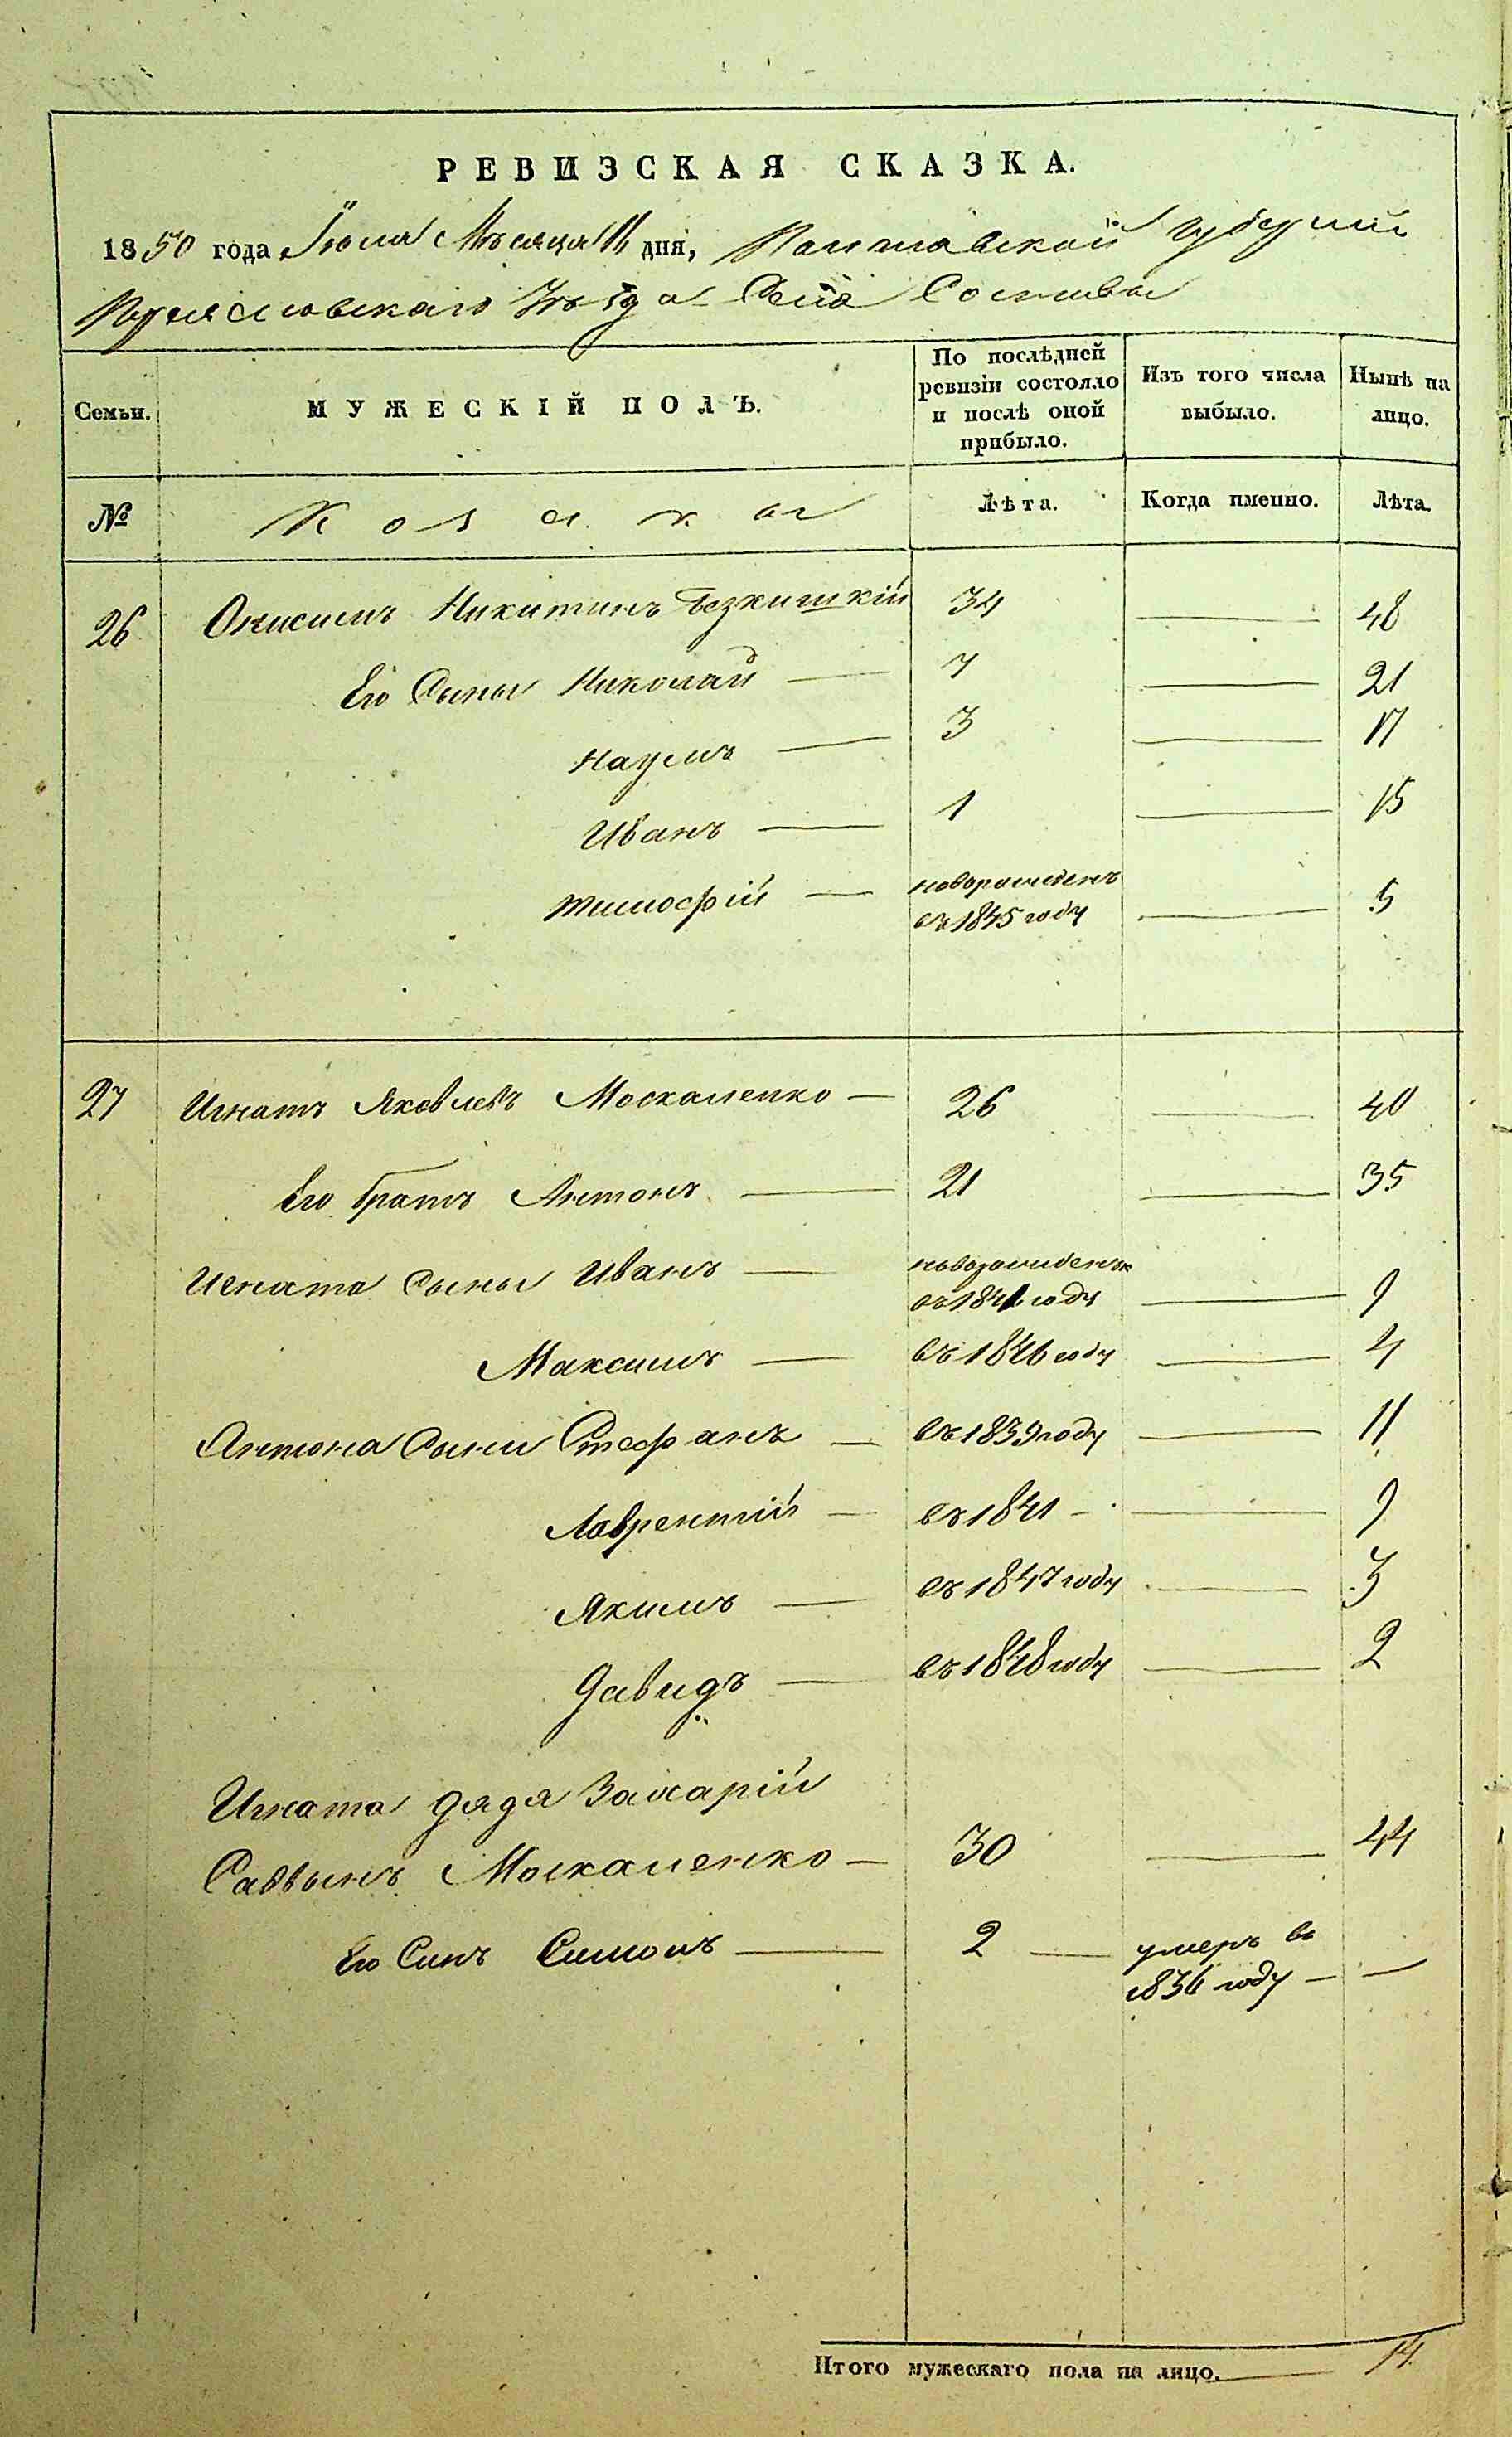 РЕВИЗСКАЯ СКАЗКА.
1850 года Іюля Мѣсяца 11 дня, Полтавской Губерніи
Переяславскаго Уѣзда Села Сосновы
Семьи. МУЖЕСКІЙ ПОЛЪ. По послѣдней ревизіи состояло и послѣ оной прибыло. Изъ того числа выбыло. Нынѣ на лицо.
№ Козаки Лѣта. Когда именно. Лѣта.
26 Онисимъ Никитинъ 34 — 48
Его Сыны Николай — 7 — 21
Наумъ — 3 — 17
Иванъ — 1 — 15
Тимофій — новорожденъ въ 1845 году — 5
27 Игнатъ Яковлевъ Москаленко — 26 — 40
Его братъ Антонъ — 21 — 35
Игната сыны Иванъ — новорожденъ въ 1841 году — 9
Максимъ — въ 1846 году — 4
Антона Сыни Стефанъ — въ 1839 году — 11
Лаврентій — въ 1841 — — 9
Якимъ — въ 1847 году — 3
Давидъ — въ 1848 году — 2
Игната дядя Захарій
Саввынъ Москаленко — 30 — 44
Его Синъ Симонъ — 2 — умеръ въ
1836 году — —
Итого мужескаго пола на лицо. — 14